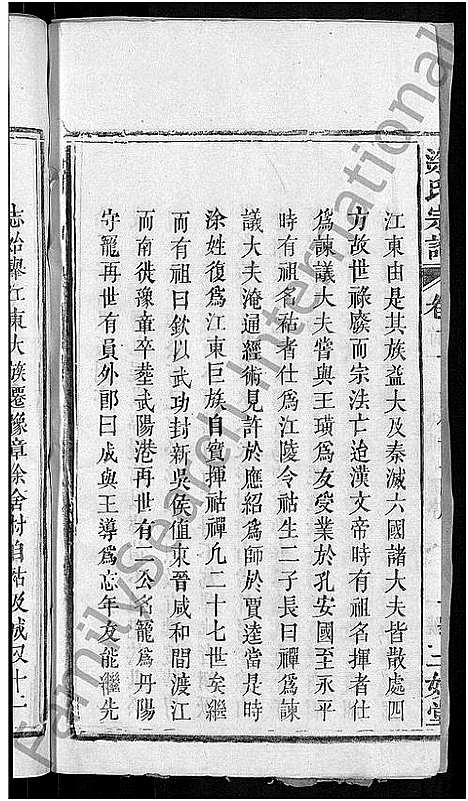 涂氏宗譜
卷
江東由是其族益大及秦滅六國諸大夫皆散處四
方故世祿廢而宗法亡迨漢文帝時有祖名揮者仕
為諫議大夫嘗與王璜為友受業於孔安國至永平
時有祖名祜者仕為江陵令祜生二子長曰禪為諫
議大夫淹通經術見許於應紹為師於賈逵當是時
涂姓復為江東巨族自賓揮祜禪允二十七世矣繼
而有祖曰欽以武功封新吳侯值東晉咸和間渡江
而南徙豫章卒塟武陽港再世有二公名龍為丹陽
守龍再世有員外郎曰成與王導為忘年友能繼先
志始擧江東大族遷豫章涂舍村自祜及成又十一
FamilySearch International